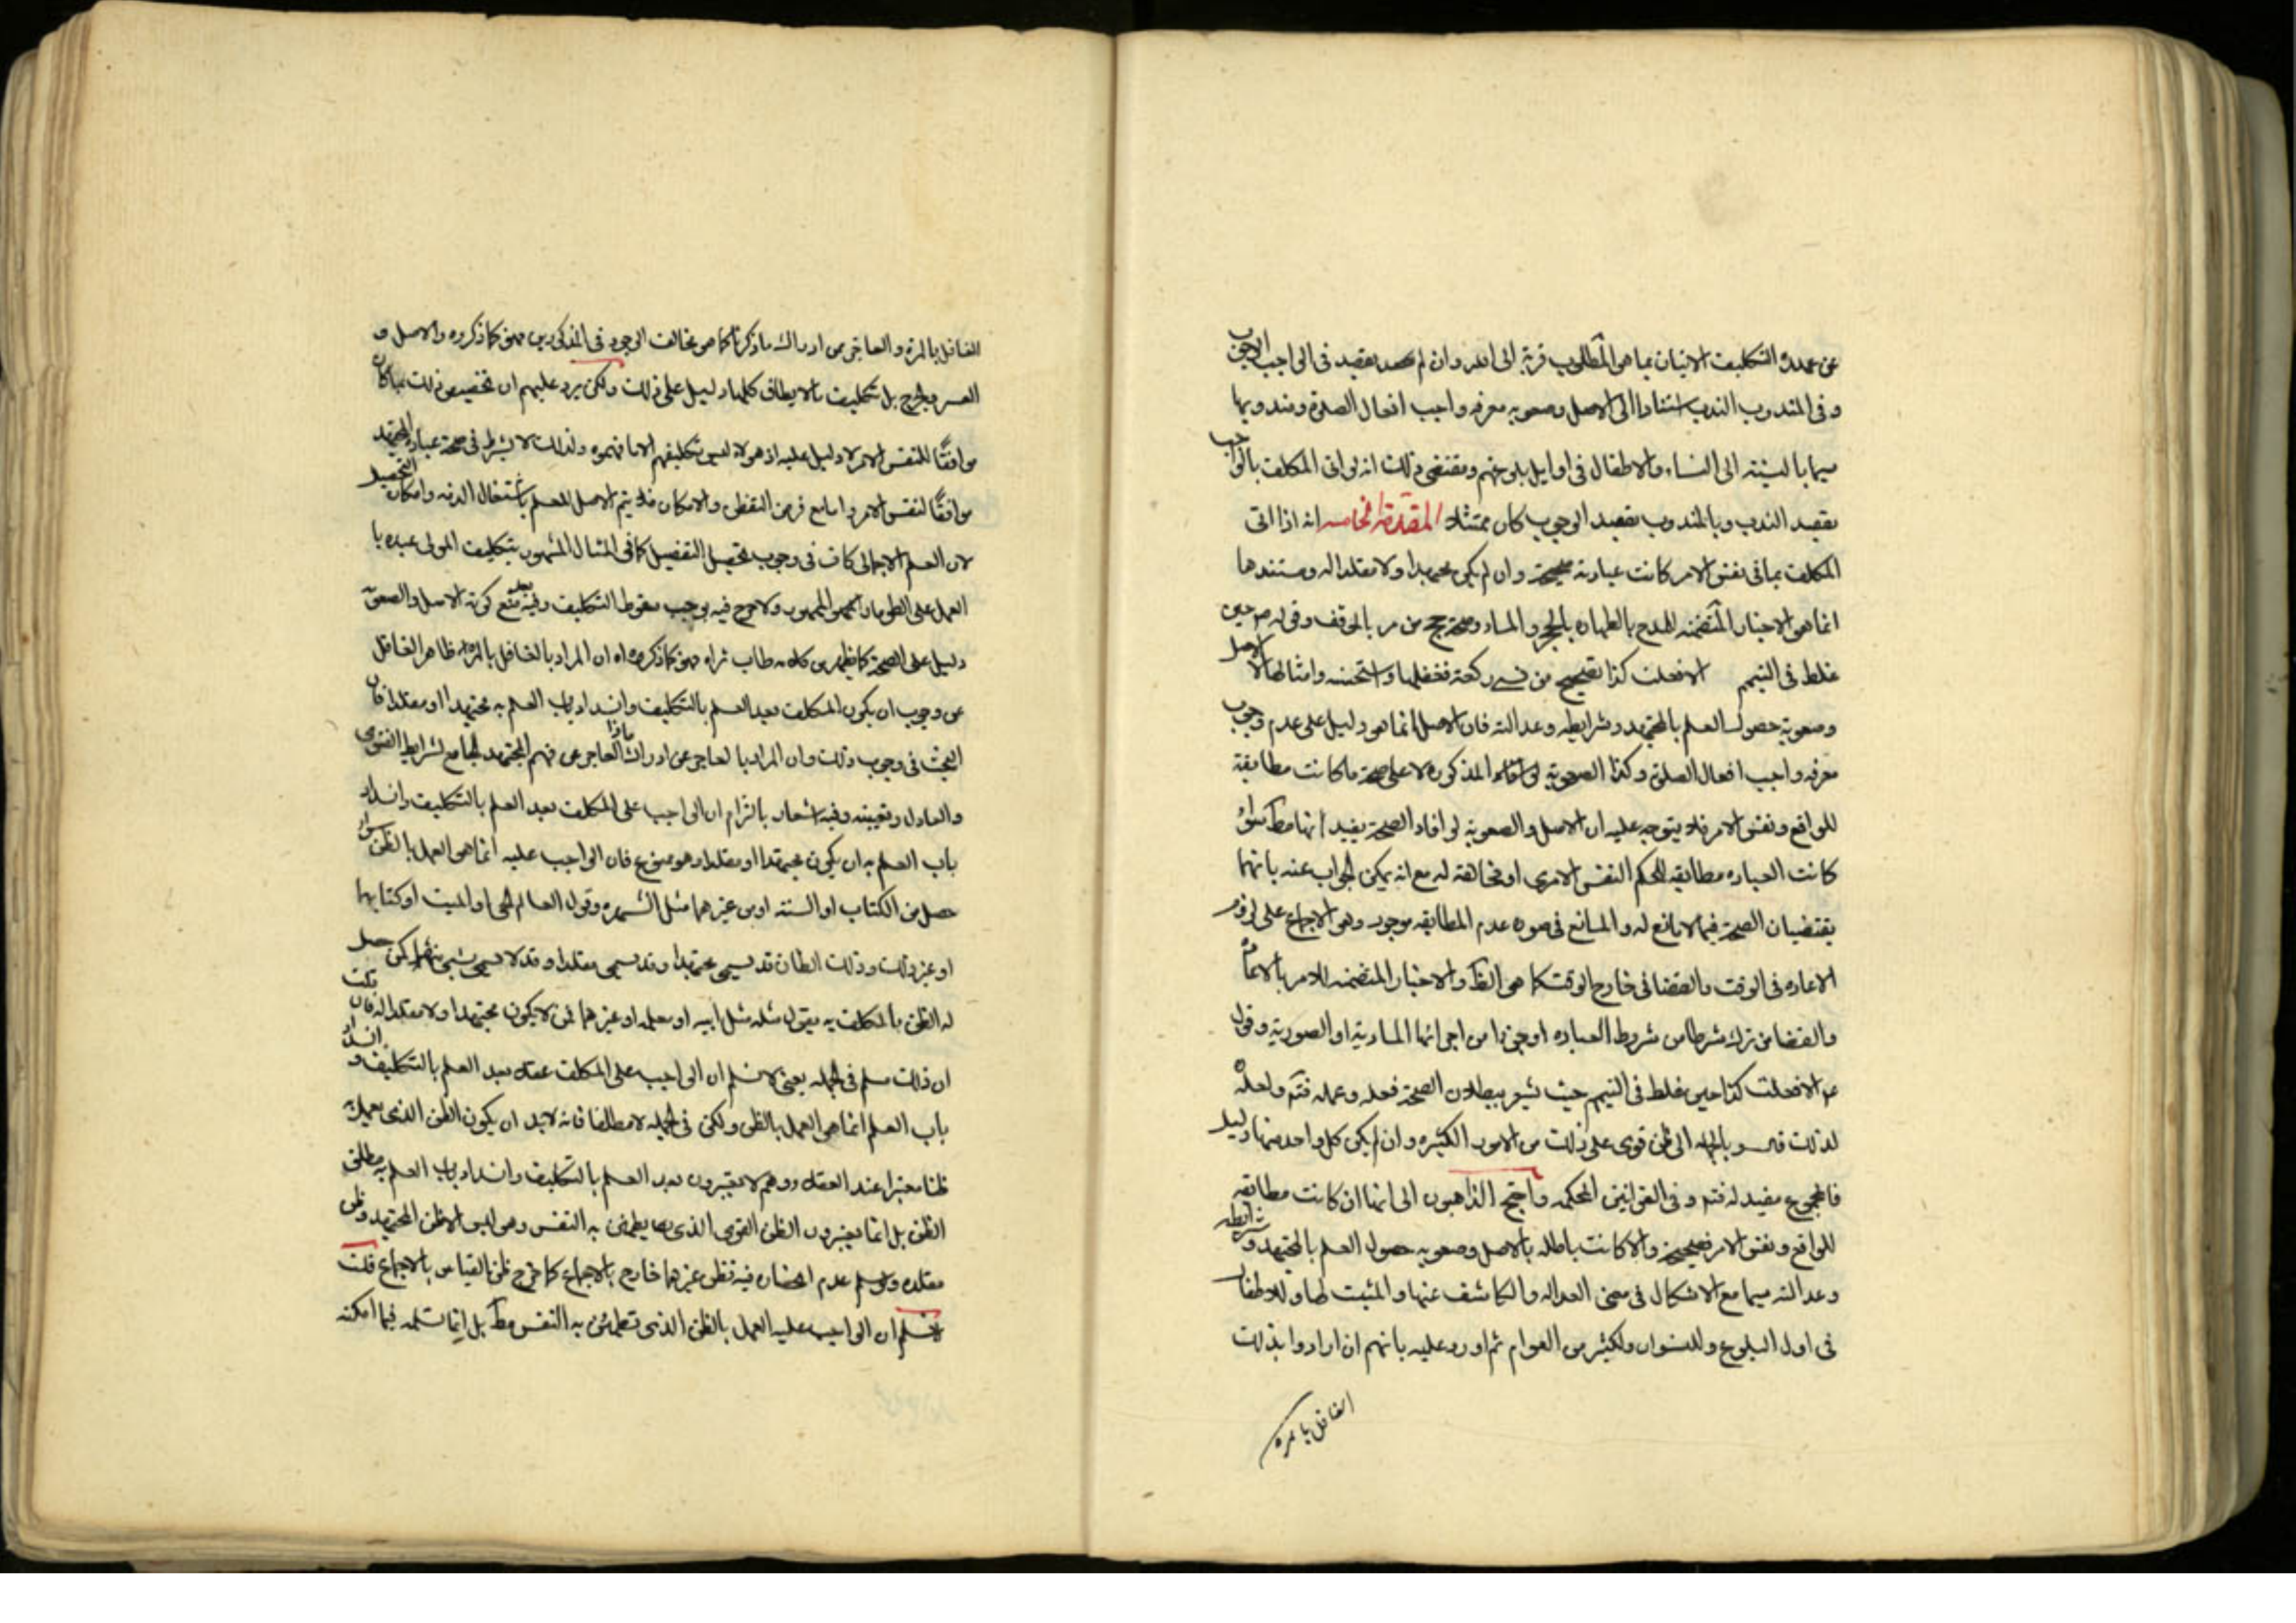 عن عهدة التكليف الاتيان بما هو المطلوب قربة الى الله وان لم يقصد في الواجب الوجوب
وفى المندوب الندب استنادا الى الاصل وصعوبه معرفه واجب افعال الصلوة ومندوبها
سيما بالنسبته الى النساء والاطفال فى اوايل بلوغهم ومقتضى ذلك انه لو اتى المكلف بالواجب
بقصد الندب وبالمندوب بقصد الوجوب كان ممتثلا المقدمة الخامسه انه اذا اتى
المكلف بما فى نفس الامر كانت عبادته صحيحة وان لم يكن مجتهدا ولا مقلدا له ومستندها
انما هو الاخبار المتضمنه للمدح بالطهاره بالحجر والماء وصحة حج من مر بالموقف وقوله ص حين
غلط فى التيمم الا فعلت كذا تصحيح من نسى ركعة ففعلها واستحسنه وامثالها الاصل
وصعوبة حصول العلم بالمجتهد وشرايطه وعدالته فان الاصل انما هو دليل على عدم وجوب
معرفه واجب افعال الصلوة وكذا الصعوبة المذكوره لا على صحة ما كانت مطابقة
للواقع ونفس الامر فلا يتوجه عليه ان الاصل والصعوبة لو افاد الصحة يفيد انها مط سواء
كانت العباده مطابقه للحكم النفس الامرى او مخالفة له مع انه يمكن الجواب عنه بانهما
يقتضيان الصحة فيما لا مانع له والمانع فى صوره عدم المطابقه موجود وهو الاجماع على لزوم
الاعاده فى الوقت والقضا فى خارج الوقت كما هو الظ والاخبار المتضمنه للامر بالاعادة
والقضا من ترك شرطا من شروط العباده او جزءا من اجزائها المادية او الصورية وقول
عم الا فعلت كذا حين غلط فى التيمم حيث يشعر ببطلان فعله وعمله فتم ولعله
لذلك قال وبالجمله الى ظن قوى على ذلك من الامور الكثيره وان لم يكن كل واحد منها دليل
فالمجموع مفيد له فتم وفى القوانين المحكمه واحتج الذاهبون الى انها ان كانت مطابقه
للواقع ونفس الامر فصحيحة والا كانت باطله بالاصل وصعوبه حصول العلم بالمجتهد وشرايطه
وعدالته سيما مع الاشكال فى معنى العداله والكاشف عنها والمثبت لها وللاطفال
فى اول البلوغ وللنسوان ولكثير من العوام ثم اورد عليه بانهم ان ارادوا بذلك
الغافل بالمره
الغافل بالمرة والعاجز عن ادراك ما ذكرنا كما هو مخالف الوجود فى المذكورين فهو كما ذكروه والاصل و
العسر والحرج بل تكليف ما لا يطاق كلها دليل على ذلك ولكن يرد عليهم ان تخصيص ذلك بما كان
موافقًا للنفس الامر لا دليل عليه اذ هؤلاء ليس تكليفهم الا ما فهموه ولذلك لا يشترط فى صحة عباده المجتهد
موافقًا لنفس الامر واما مع فرض التفطن والامكان فلا يتم الاصل للعلم باشتغال الذمه وامكان التحصيل
لان العلم الاجمالى كاف فى وجوب تحصيل التفصيل كما فى المثال المشهور بتكليف المولى عبده با
العمل على الطومار المختوم ولا حرج فيه يوجب سقوط التكليف وفيه بعد منع كونه الاصل والصعوبة
دليل على الصحة كما يظهر من كلامه طاب ثراه فهو كما ذكروه ان المراد بالغافل بالمرة ظاهر الغافل
عن وجوب ان يكون المكلف بعد العلم بالتكليف وانسداد باب العلم به مجتهدا او مقلدا فان
البحث فى وجوب ذلك وان المراد بالعاجز عن ادراك ماذا العاجز عن فهم المجتهد الجامع لشرايط الفتوى
والعادل وتعيينه وفيه اشعار بالتزام ان الواجب على المكلف بعد العلم بالتكليف وانسداد
باب العلم به ان يكون مجتهدا او مقلدا وهو ممنوع فان الواجب عليه انما هو العمل بالظن سواء
حصل من الكتاب او السنته او من غيرهما مثل الشهره وقول العالم الحى او الميت او كتابهما
او غير ذلك وذلك الظان قد يسمى مجتهدا وقد يسمى مقلدا وقد لا يسمى بشىء منهما كمن حصل
له الظن بالمكلف به بقول مثله مثل ابيه او معلمه او غيرهما ممن لا يكون مجتهدا ولا مقلدا له فان قلت
ان ذلك مسلم فى الجمله يعنى لا نسلم ان الواجب على المكلف عقلا بعد العلم بالتكليف وانسداد
باب العلم انما هو العمل بالظن ولكن فى الجمله لا مطلقا فانه لا بد ان يكون الظن الذى يعمل به
ظنا معتبرا عند العقلاء وهم لا يعتبرون بعد العلم بالتكليف وانسداد باب العلم به مطلق
الظن بل انما يعتبرون الظن القوى الذى يطمئن به النفس وهو ليس الا ظن المجتهد وظن
مقلده ولو سلم عدم انحصاره فيه فظن غيرهما خارج بالاجماع كما خرج ظن القياس بالاجماع قلت
لا نسلم ان الواجب عليه العمل بالظن الذى تطمئن به النفس مط بل انما نسلمه فيما امكنه